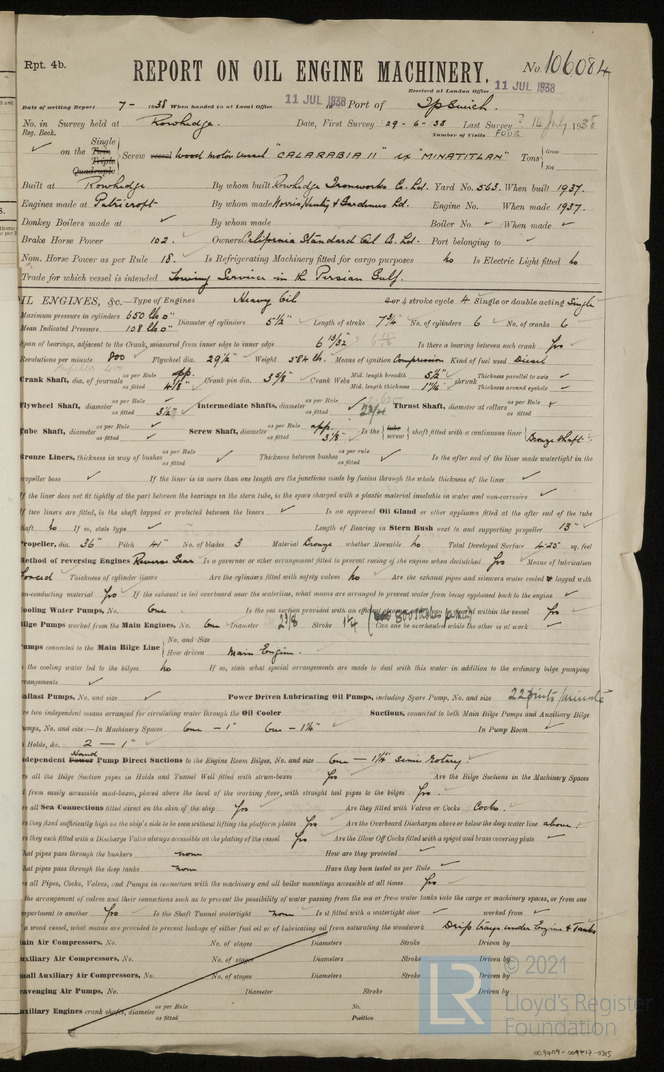 Rpt. 4b.
REPORT ON OIL ENGINE MACHINERY.
No. 106084
Received at London Office 11 JUL 1938
Date of writing Report 7- 1938 When handed in at Local Office 11 JUL 1938 Port of Ipswich.
No. in Survey held at Rowhedge. Date, First Survey 29-6-38 Last Survey 14 July 1938
Reg. Book. Number of Visits FOUR
Single
on the Twin Screw vessel Wood motor vessel "CALARABIA II" ex "MINATITLAN" Tons Gross Net
Triple
Quadruple
Built at Rowhedge By whom built Rowhedge Ironworks Co. Ld. Yard No. 563. When built 1937.
Engines made at Patricroft By whom made Norris, Henty & Gardners Ld. Engine No. When made 1937.
Donkey Boilers made at ✓ By whom made Boiler No. ✓ When made ✓
Brake Horse Power 102. Owners California Standard Oil Co. Ld. Port belonging to
Nom. Horse Power as per Rule 18. Is Refrigerating Machinery fitted for cargo purposes no Is Electric Light fitted no
Trade for which vessel is intended Towing Service in the Persian Gulf.
OIL ENGINES, &c.—Type of Engines Heavy Oil 2 or 4 stroke cycle 4 Single or double acting Single
Maximum pressure in cylinders 650 lbs □" Diameter of cylinders 5½" Length of stroke 7¾" No. of cylinders 6 No. of cranks 6
Mean Indicated Pressure 108 lbs □"
Span of bearings, adjacent to the Crank, measured from inner edge to inner edge 6 13/32 Is there a bearing between each crank Yes
Revolutions per minute 800 Flywheel dia. 29½" Weight 384 lbs. Means of ignition Compression Kind of fuel used Diesel
Crank Shaft, dia. of journals as per Rule app. as fitted 4⅛" Crank pin dia. 3⅝" Crank Webs Mid. length breadth 5½" Mid. length thickness shrunk Thickness parallel to axis ✓ Thickness around eyehole ✓
Flywheel Shaft, diameter as per Rule as fitted Intermediate Shafts, diameter as per Rule as fitted Thrust Shaft, diameter at collars as per Rule as fitted
Tube Shaft, diameter as per Rule as fitted Screw Shaft, diameter as per Rule app. as fitted 3⅛" Is the tube screw shaft fitted with a continuous liner Bronze Shaft
Bronze Liners, thickness in way of bushes as per Rule as fitted Thickness between bushes as per rule as fitted Is the after end of the liner made watertight in the
propeller boss ✓ If the liner is in more than one length are the junctions made by fusion through the whole thickness of the liner ✓
If the liner does not fit tightly at the part between the bearings in the stern tube, is the space charged with a plastic material insoluble in water and non-corrosive ✓
If two liners are fitted, is the shaft lapped or protected between the liners ✓ Is an approved Oil Gland or other appliance fitted at the after end of the tube
shaft no If so, state type ✓ Length of Bearing in Stern Bush next to and supporting propeller 13"
Propeller, dia. 36" Pitch 41" No. of blades 3 Material Bronze whether Moveable no Total Developed Surface 4.25 sq. feet
Method of reversing Engines Reverse Gear Is a governor or other arrangement fitted to prevent racing of the engine when declutched Yes Means of lubrication
Forced Thickness of cylinder liners Are the cylinders fitted with safety valves no Are the exhaust pipes and silencers water cooled or lagged with
non-conducting material Yes If the exhaust is led overboard near the waterline, what means are arranged to prevent water from being syphoned back to the engine ✓
Cooling Water Pumps, No. One Is the sea suction provided with an efficient strainer within the vessel Yes
Bilge Pumps worked from the Main Engines, No. One Diameter 2⅜ Stroke 1¼ Can one be overhauled while the other is at work ✓
Pumps connected to the Main Bilge Line No. and Size How driven Main Engine.
Is the cooling water led to the bilges no If so, state what special arrangements are made to deal with this water in addition to the ordinary bilge pumping
arrangements ✓
Ballast Pumps, No. and size ✓ Power Driven Lubricating Oil Pumps, including Spare Pump, No. and size 22 pints/minute
Are two independent means arranged for circulating water through the Oil Cooler Suctions, connected to both Main Bilge Pumps and Auxiliary Bilge
Pumps, No. and size:—In Machinery Spaces One — 1" One — 1¼" In Pump Room ✓
In Holds, &c. 2 — 1"
Independent Power Hand Pump Direct Suctions to the Engine Room Bilges, No. and size One — 1¼" Semi Rotary.
Are all the Bilge Suction pipes in Holds and Tunnel Well fitted with strum-boxes Yes Are the Bilge Suctions in the Machinery Spaces
led from easily accessible mud-boxes, placed above the level of the working floor, with straight tail pipes to the bilges Yes.
Are all Sea Connections fitted direct on the skin of the ship Yes Are they fitted with Valves or Cocks Cocks.
Are they fixed sufficiently high on the ship's side to be seen without lifting the platform plates Yes Are the Overboard Discharges above or below the deep water line above
Are they each fitted with a Discharge Valve always accessible on the plating of the vessel Yes Are the Blow Off Cocks fitted with a spigot and brass covering plate ✓
What pipes pass through the bunkers none How are they protected ✓
What pipes pass through the deep tanks none Have they been tested as per Rule ✓
Are all Pipes, Cocks, Valves, and Pumps in connection with the machinery and all boiler mountings accessible at all times Yes
Is the arrangement of valves and their connections such as to prevent the possibility of water passing from the sea or from water tanks into the cargo or machinery spaces, or from one
compartment to another Yes Is the Shaft Tunnel watertight none Is it fitted with a watertight door ✓ worked from ✓
If a wood vessel, what means are provided to prevent leakage of either fuel oil or of lubricating oil from saturating the woodwork Drip trays under Engine & Tanks
Main Air Compressors, No. No. of stages Diameters Stroke Driven by
Auxiliary Air Compressors, No. No. of stages Diameters Stroke Driven by
Small Auxiliary Air Compressors, No. No. of stages Diameters Stroke Driven by
Scavenging Air Pumps, No. Diameter Stroke Driven by
Auxiliary Engines crank shafts, diameter as per Rule as fitted No. Position
© 2021
LR Lloyd's Register
Foundation
009409-009417-0315